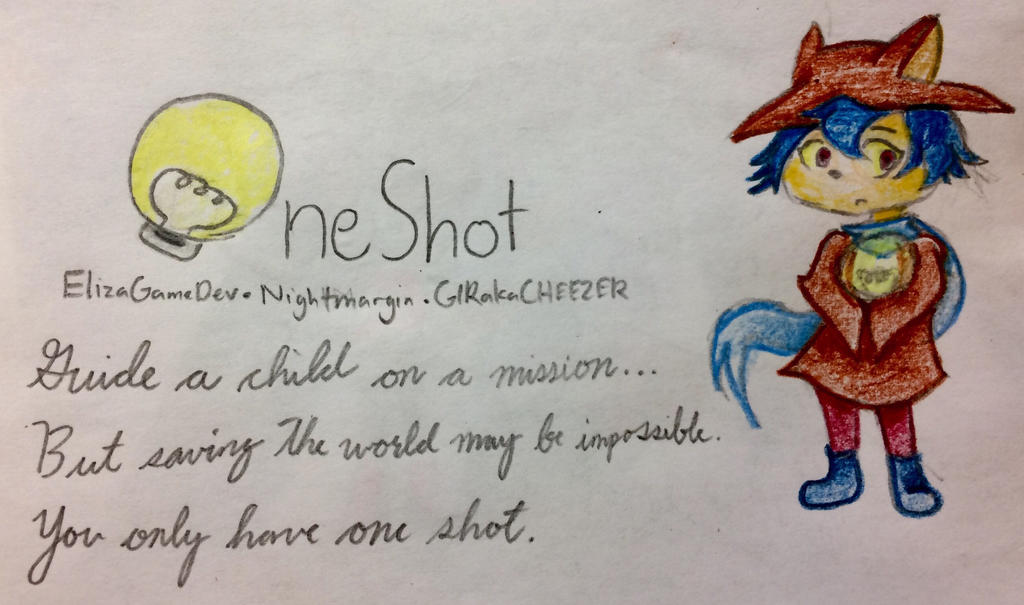 OneShot
ElizaGameDev • Nightmargin • GIRakaCHEEZER
Guide a child on a mission...
But saving the world may be impossible.
You only have one shot.